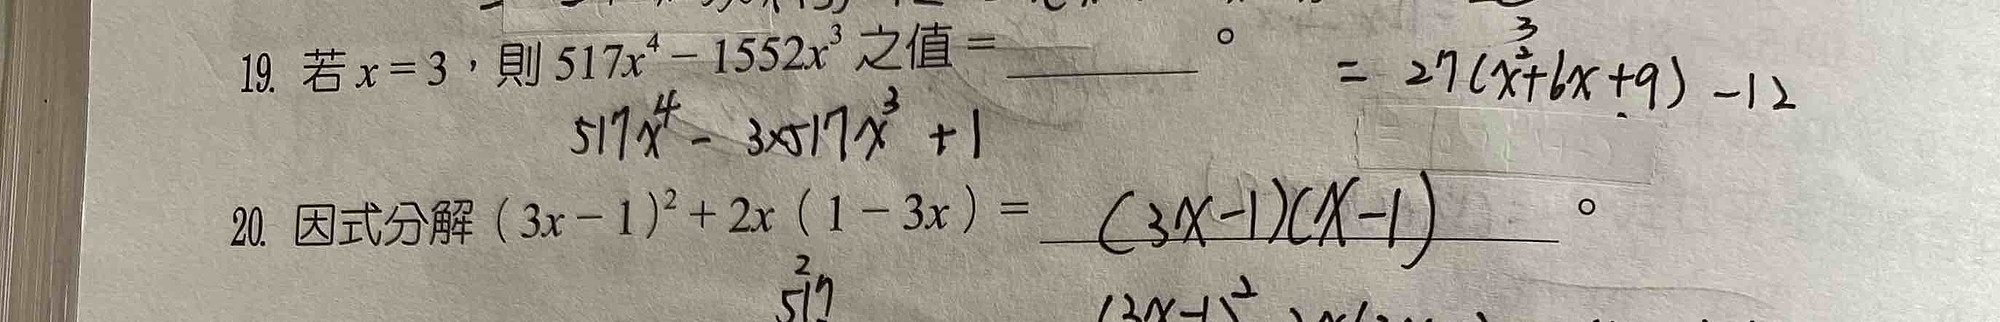 19. 若 x = 3，則 517x⁴ − 1552x³ 之值 = ________。
= 27(x³²+6x+9) −12
517x⁴ − 3×517x³ +1
20. 因式分解（3x − 1）² + 2x（1 − 3x）= (3x−1)(x−1)。
2
517